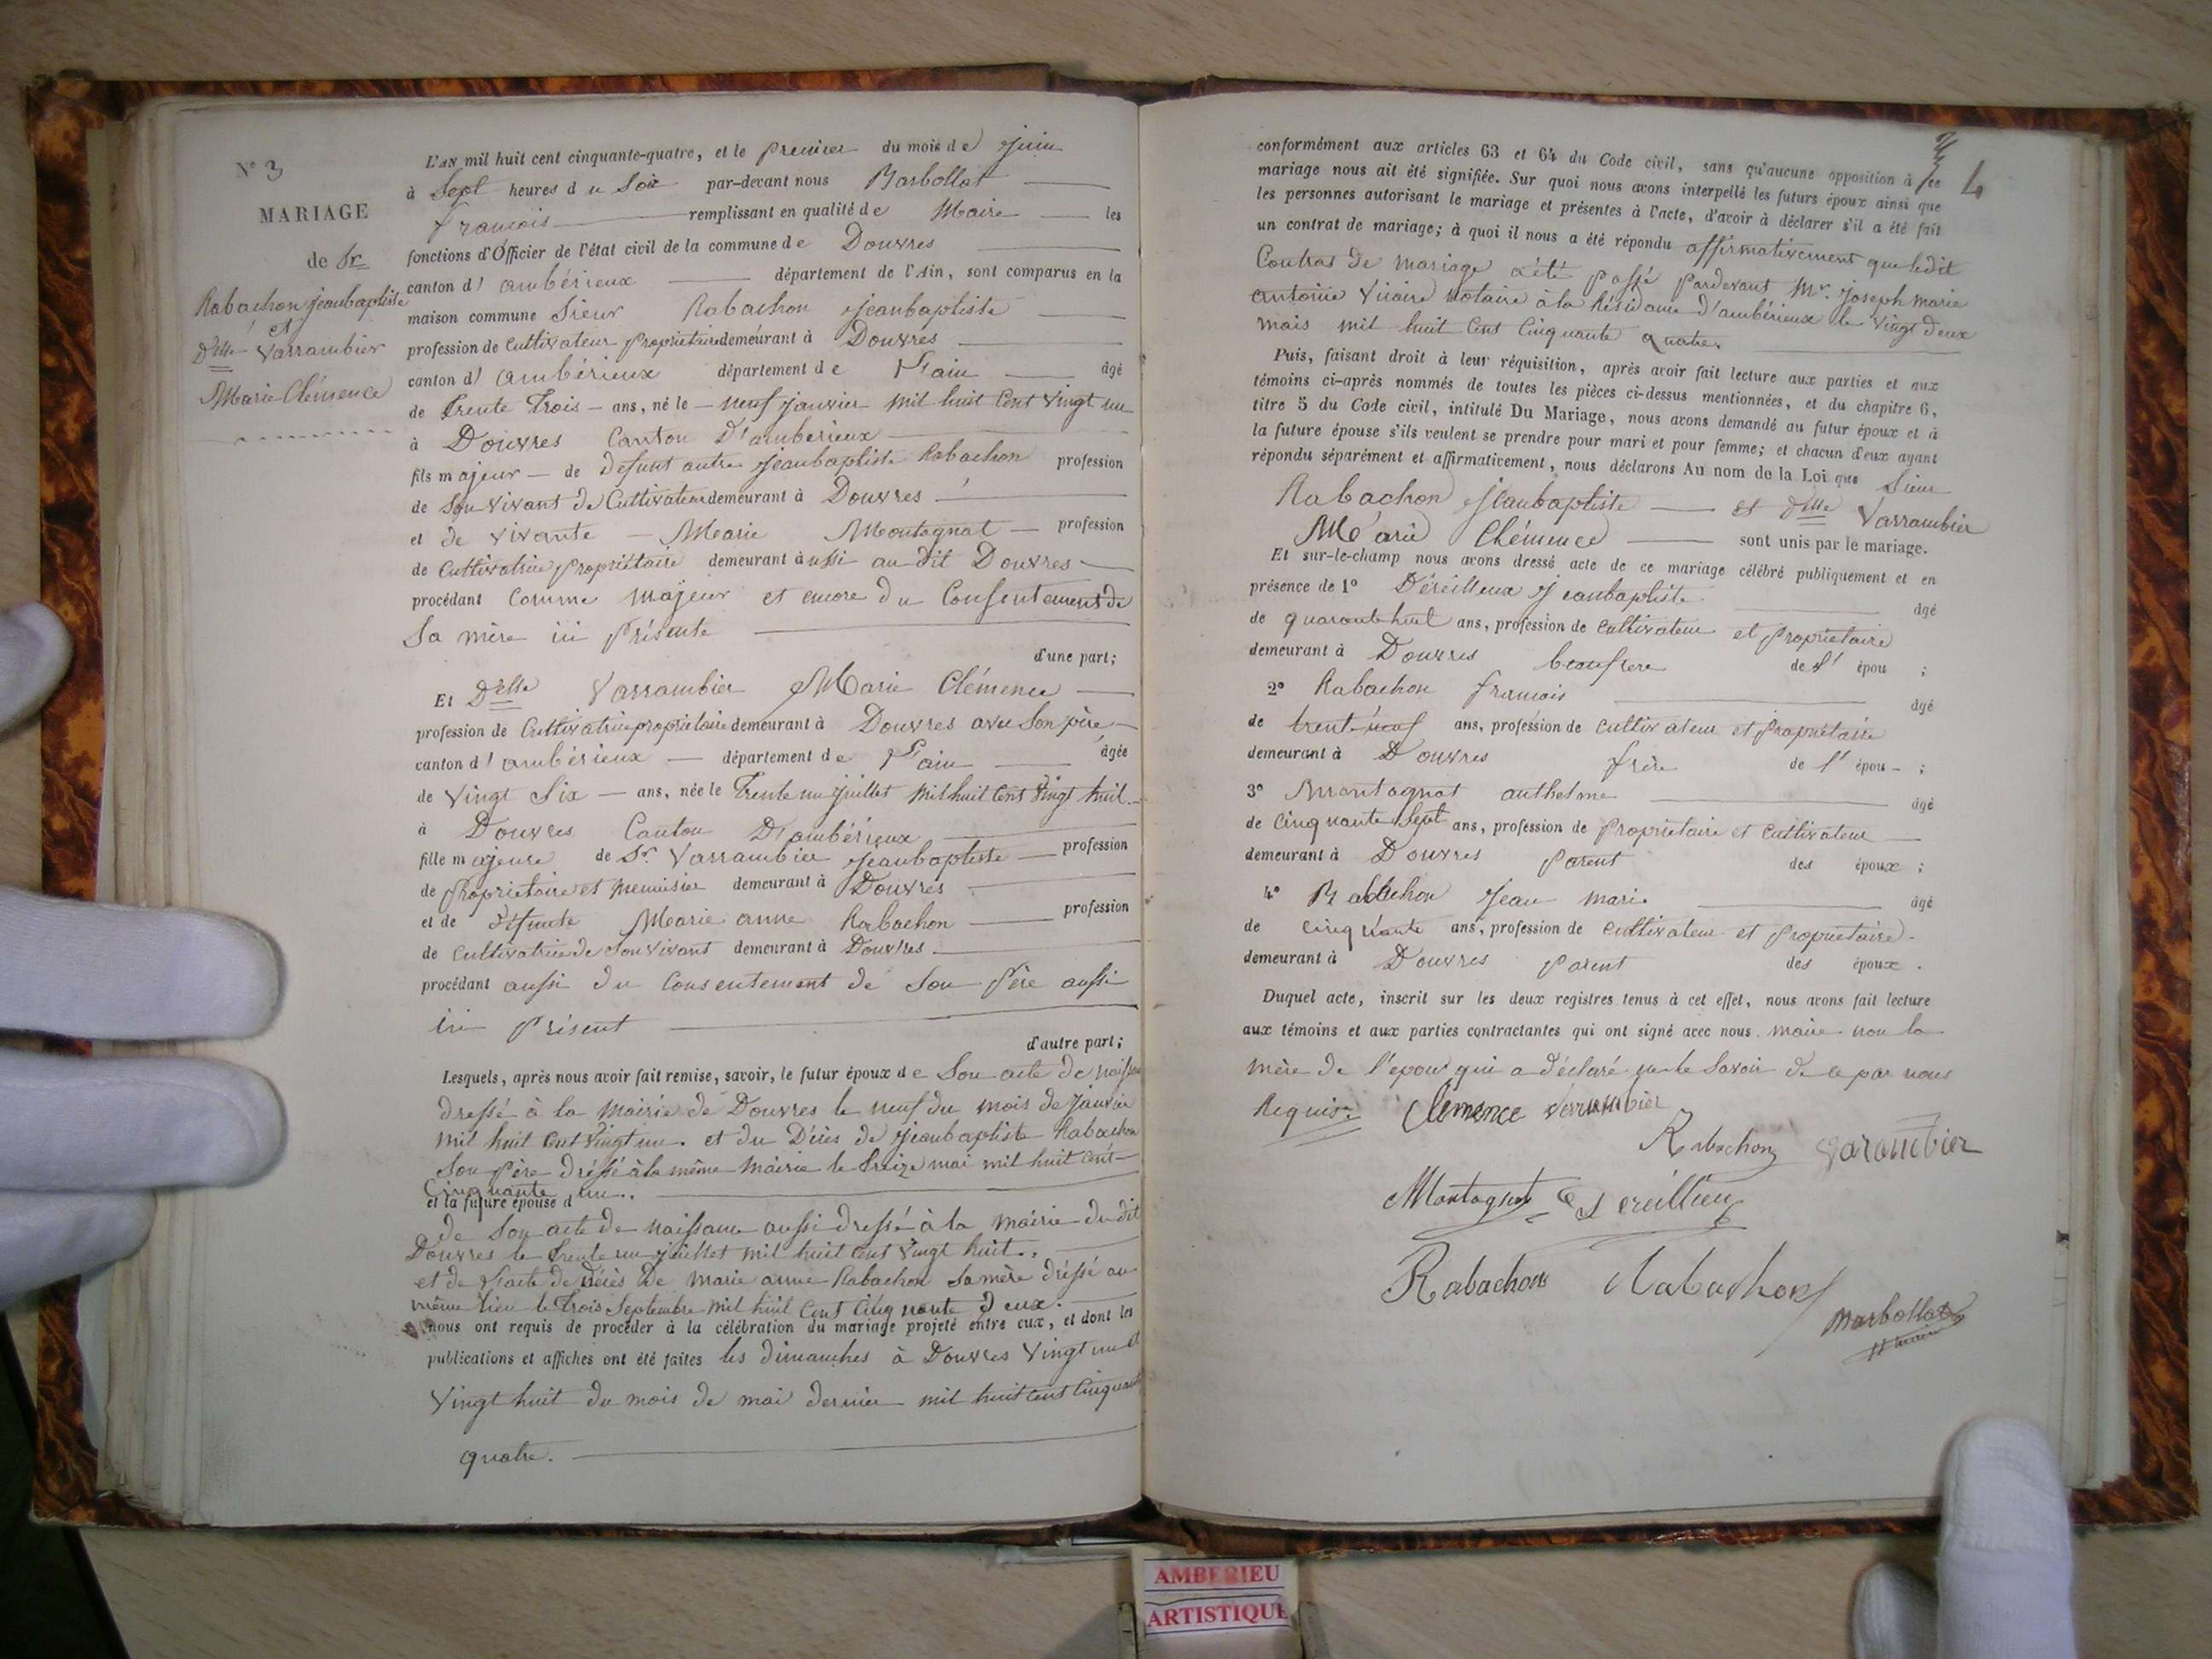 N° 3
MARIAGE
de Sr
Rabachon Jeanbaptiste
et
Delle Varrambier
Marie Clémence
L'AN mil huit cent cinquante-quatre, et le premier du mois de Juin
à Sept heures du Soir par-devant nous Barbollat
françois remplissant en qualité de Maire les
fonctions d'Officier de l'état civil de la commune de Douvres
canton d'ambérieux département de l'Ain, sont comparus en la
maison commune Sieur Rabachon Jeanbaptiste
profession de Cultivateur propriétaire demeurant à Douvres
canton d'ambérieux département de l'ain âgé
de trente trois ans, né le neuf janvier mil huit Cent vingt un
à Douvres Canton D'amberieux
fils majeur de defunt autre Jeanbaptiste Rabachon profession
de Son vivant de Cultivateur demeurant à Douvres
et de vivante Marie Montagnat profession
de Cultivatrice propriétaire demeurant aussi au dit Douvres
procédant Comme Majeur et encore du Consentement de
Sa mère ici présente
d'une part;
Et Delle Varrambier Marie Clémence
profession de Cultivatrice propriétaire demeurant à Douvres avec Son père
canton d'ambérieux département de l'ain âgée
de vingt Six ans, née le trente un Juillet mil huit Cent vingt huit
à Douvres Canton D'ambérieux
fille majeure de Sr. Varrambier Jeanbaptiste profession
de propriétaire et menuisier demeurant à Douvres
et de défunte Marie anne Rabachon profession
de Cultivatrice de Son vivant demeurant à Douvres
procédant aussi du Consentement de Son père aussi
ici présent
d'autre part;
Lesquels, après nous avoir fait remise, savoir, le futur époux de Son acte de naissance
dressé à la Mairie de Douvres le neuf du mois de Janvier
mil huit Cent vingt un. et du Décès de Jeanbaptiste Rabachon
Son père dressé à la même Mairie le treize mai mil huit cent
Cinquante un.
et la future épouse d
de Son acte de naissance aussi dressé à la Mairie du dit
Douvres le trente un juillet mil huit Cent vingt huit.
et de l'acte de décès de marie anne Rabachon Sa mère dressé au
même lieu le trois Septembre mil huit Cent Cinquante deux.
nous ont requis de procéder à la célébration du mariage projeté entre eux, et dont les
publications et affiches ont été faites les dimanches à Douvres vingt un et
vingt huit du mois de mai dernier mil huit cent Cinquante
quatre.
4
conformément aux articles 63 et 64 du Code civil, sans qu'aucune opposition à ce
mariage nous ait été signifiée. Sur quoi nous avons interpellé les futurs époux ainsi que
les personnes autorisant le mariage et présentes à l'acte, d'avoir à déclarer s'il a été fait
un contrat de mariage; à quoi il nous a été répondu affirmativement que ledit
Contrat de mariage a été passé pardevant Mr. Joseph Marie
antoine notaire à la Résidance d'ambérieux le vingt deux
mais mil huit Cent Cinquante quatre.
Puis, faisant droit à leur réquisition, après avoir fait lecture aux parties et aux
témoins ci-après nommés de toutes les pièces ci-dessus mentionnées, et du chapitre 6,
titre 5 du Code civil, intitulé Du Mariage, nous avons demandé au futur époux et à
la future épouse s'ils veulent se prendre pour mari et pour femme; et chacun d'eux ayant
répondu séparément et affirmativement, nous déclarons Au nom de la Loi que Sieur
Rabachon Jeanbaptiste et Delle Varrambier
Marie Clémence sont unis par le mariage.
Et sur-le-champ nous avons dressé acte de ce mariage célébré publiquement et en
présence de 1° Déreilleux Jeanbaptiste âgé
de quarante huit ans, profession de Cultivateur et propriétaire
demeurant à Douvres beaufrere de l' épou ;
2° Rabachon françois âgé
de trente neuf ans, profession de Cultivateur et propriétaire
demeurant à Douvres frère de l' épou ;
3° Montagnat anthelme âgé
de Cinquante Sept ans, profession de propriétaire et Cultivateur
demeurant à Douvres parent des époux ;
4° Rabachon Jean marie âgé
de Cinquante ans, profession de Cultivateur et propriétaire.
demeurant à Douvres parent des époux .
Duquel acte, inscrit sur les deux registres tenus à cet effet, nous avons fait lecture
aux témoins et aux parties contractantes qui ont signé avec nous. maire non la
mère de l'époux qui a déclaré ne le Savoir de ce par nous
Requise
Clemence Verrambier
Rabachon Varambier
Montagnat Dereillieux
Rabachon Rabachon
Barbollat
maire
AMBERIEU
ARTISTIQUE